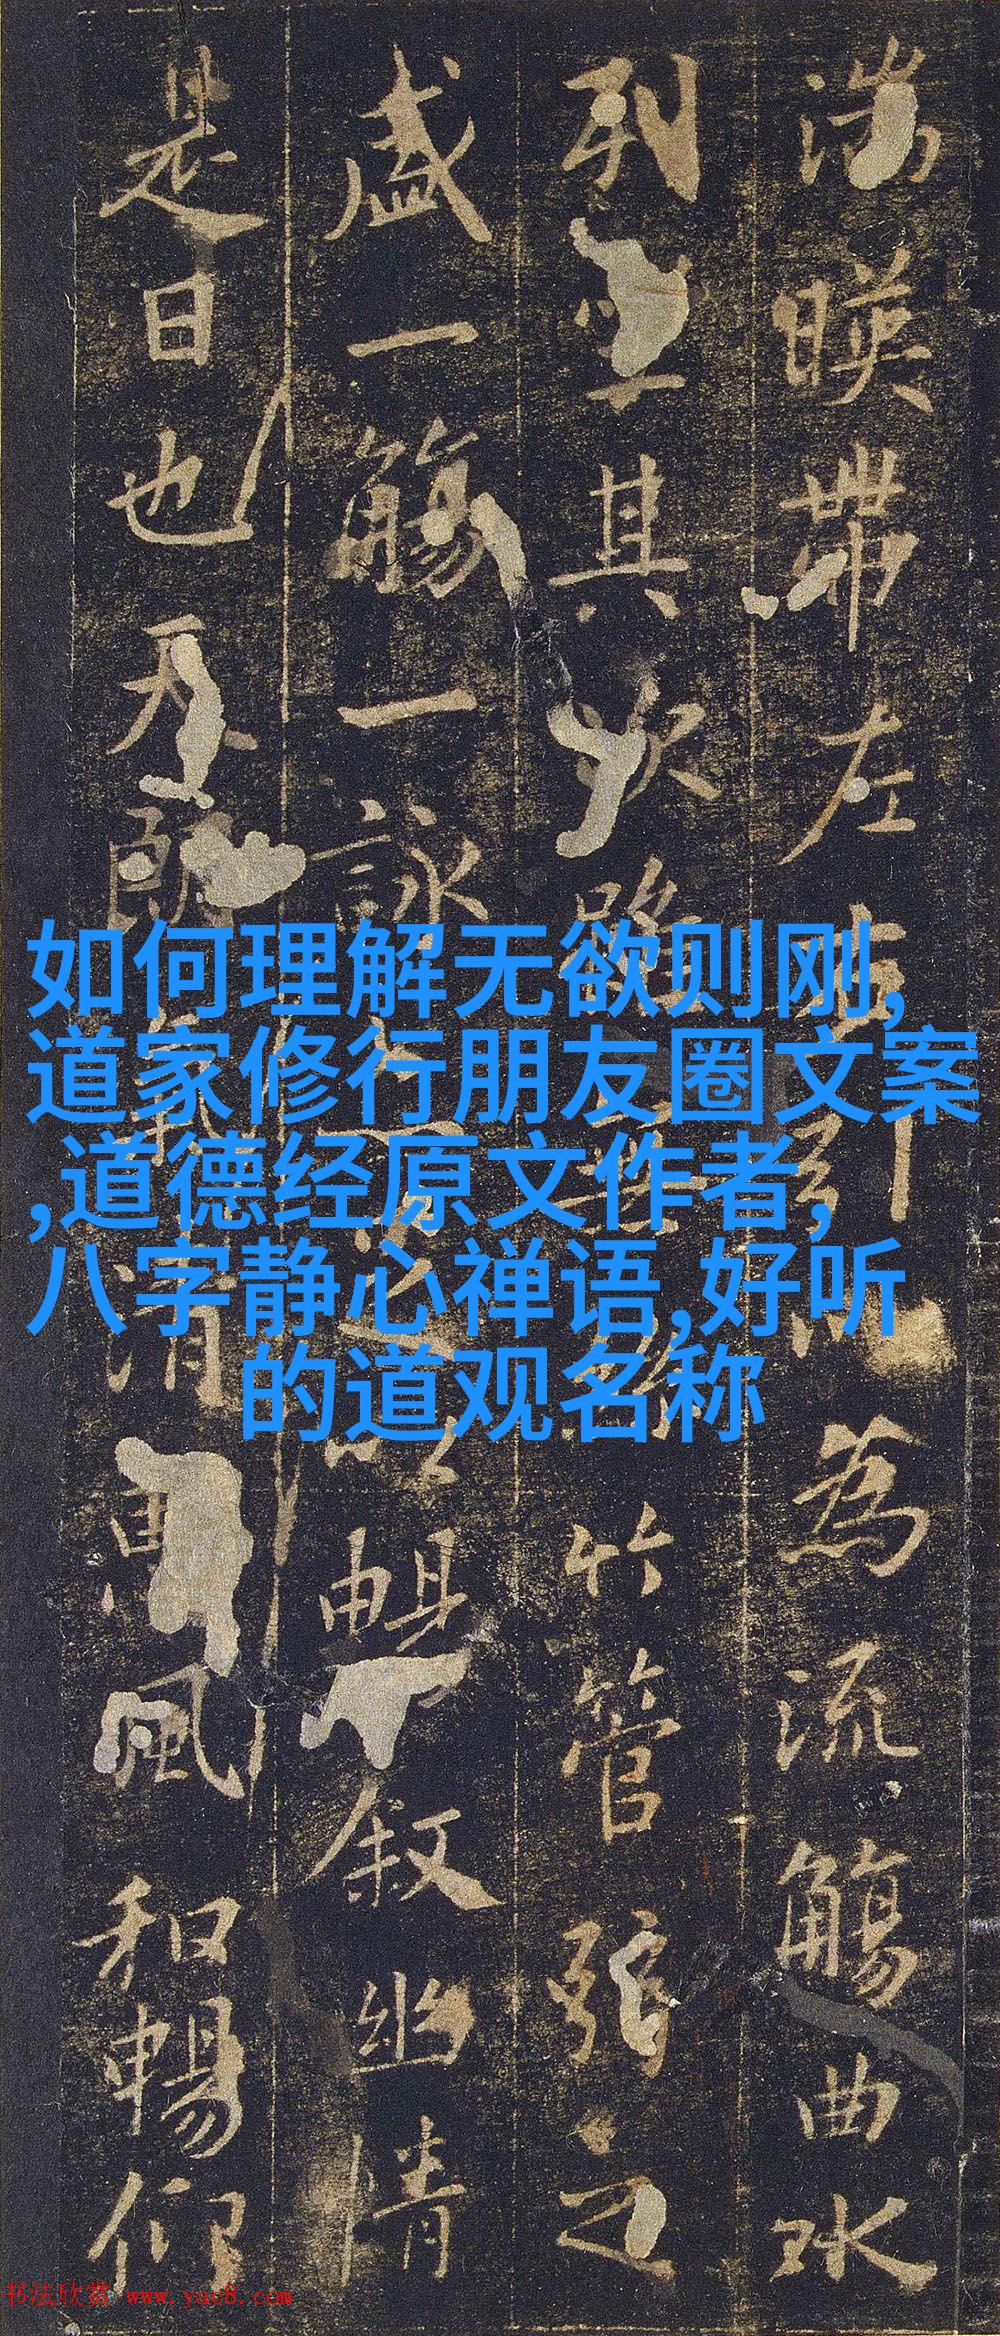 湍暎帶左右引以為流觴曲水
列坐其次雖無竹管弦之
盛一觴一詠以暢叙幽情
是日也天朗氣清惠風和暢仰
如何理解无欲则刚,
道家修行朋友圈文案
,道德经原文作者,
八字静心禅语,好听
的道观名称
书法欣赏 www.yac8.com